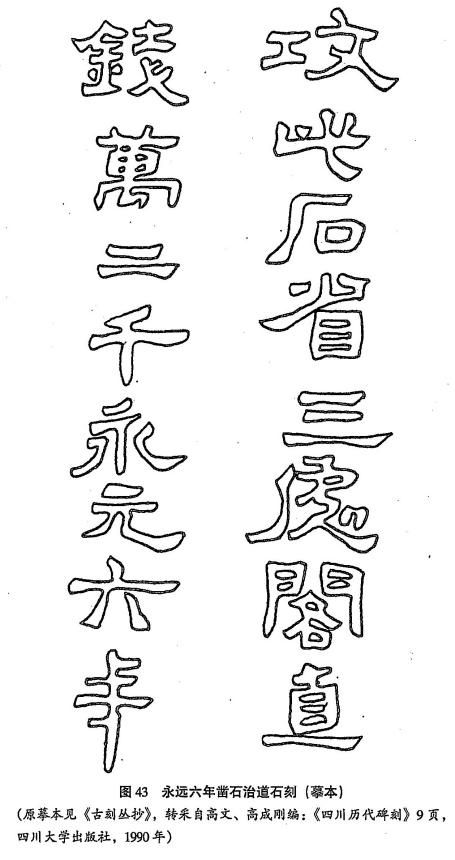 攻此石省三處閣直
錢萬二千永元六年
图43 永远六年凿石治道石刻（摹本）
（原摹本见《古刻丛抄》，转采自高文、高成刚编：《四川历代碑刻》9页，
四川大学出版社，1990年）